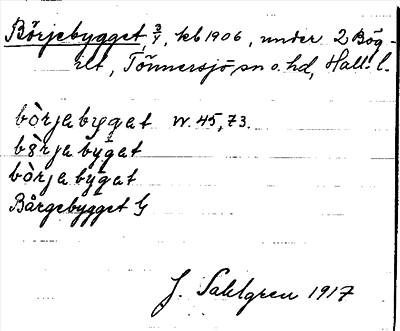 Börjebygget, 3/4, kb 1906, under 2 Bög-
rlt, Tönnersjö sn o. hd, Hall. l.
bòrjabygat W. 45, 73.
bòrjabygat
bòrjabygat
Bårgebygget G
J. Sahlgren 1917